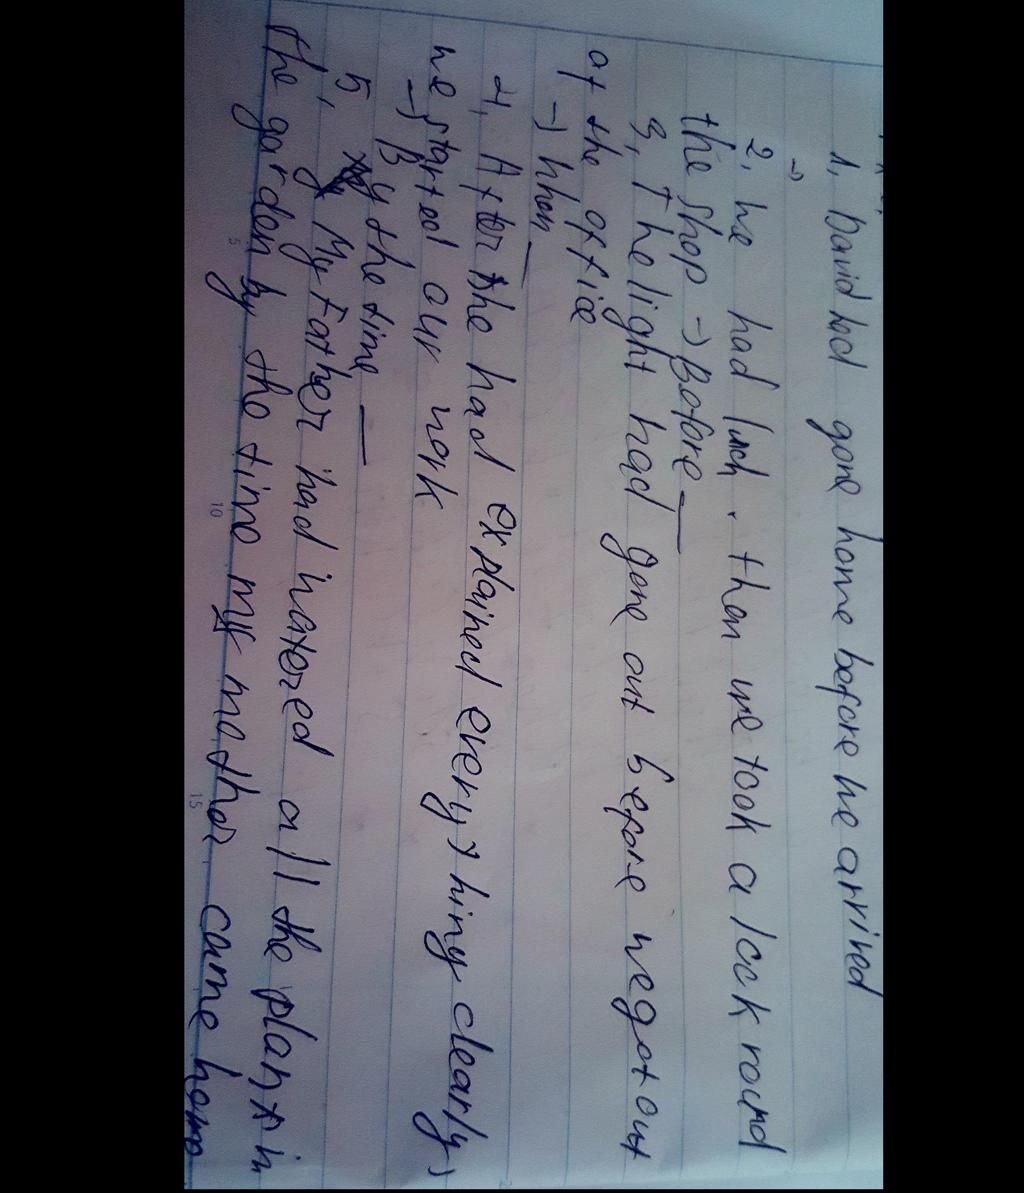 1, David had gone home before we arrived
→
2, we had luch. then we took a look round
the shop → Before _
3, The light had gone out before we got out
of the office
→ When _
4, After she had explained everything clearly,
we started our work
→ By the time _
5, My Father had watered all the plant in
the garden by the time my mother came home
5
10
15